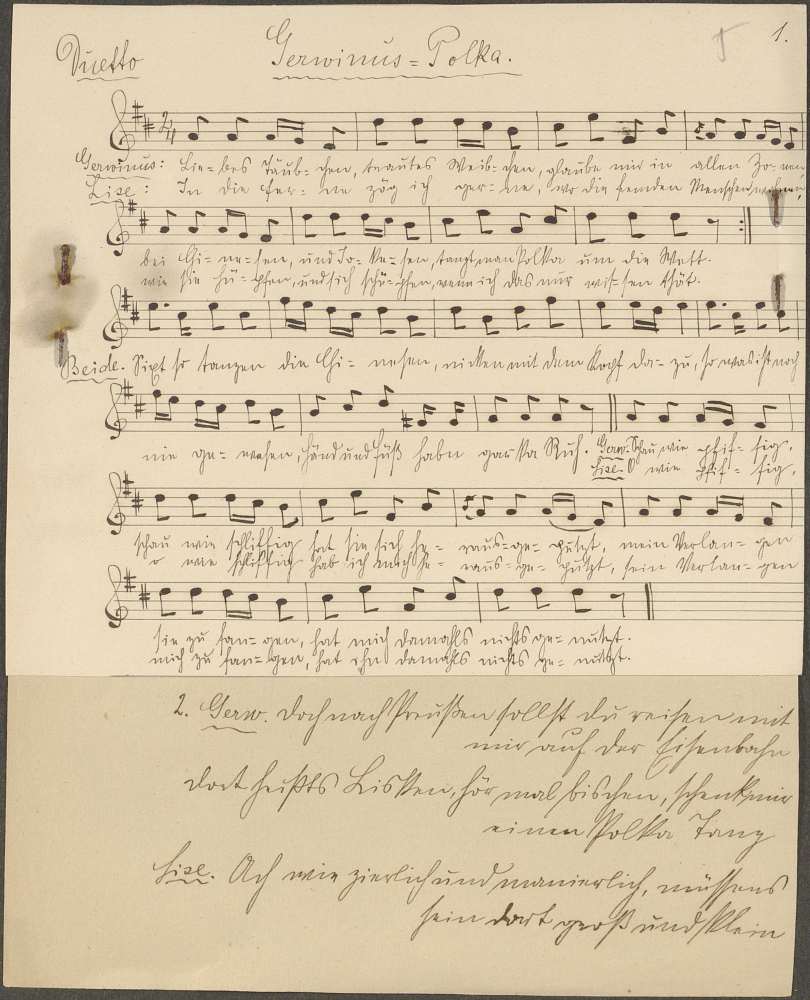 1.
Duetto Gerwinus=Polka.
Gerwinus: Lie=bes Täub=chen, trautes Weib=chen, glaube mir in allen Zo=nen
Lise: In die Fer=ne zög ich ger=ne, wo die fremden Menschen wohnen,
bei Chi=ne=sen, und Jo=ke=sen, tanzt man Polka um die Wett.
wie sie hü=pfen, und sich schü=pfen, wenn ich das nur wis=sen thät.
Beide. Sixt so tanzen die Chi=nesen, nicken mit dem Kopf da=zu, so was ist noch
nie ge=wesen, Händ und Füß habn gar ka Ruh. Gerw: Schau wie pfif=fig,
Lise. O wie pfif=fig,
schau wie schliffig hat sie sich he=raus=ge=putzt, mein Verlan=gen
o wie schliffig hab ich mich he=raus=ge=putzt, sein Verlan=gen
sie zu fan=gen, hat mich damahls nichts ge=nutzt.
mich zu fan=gen, hat ihn damahls nichts ge=nutzt.
2. Gerw. Doch nach Preußen sollst du reisen mit
mir auf der Eisenbahn
dort heißts Lisken, hör mal bischen, schenk mir
einen Polka Tanz
Lise. Ach wie zierlich und manierlich, müssens
sein dort groß und klein